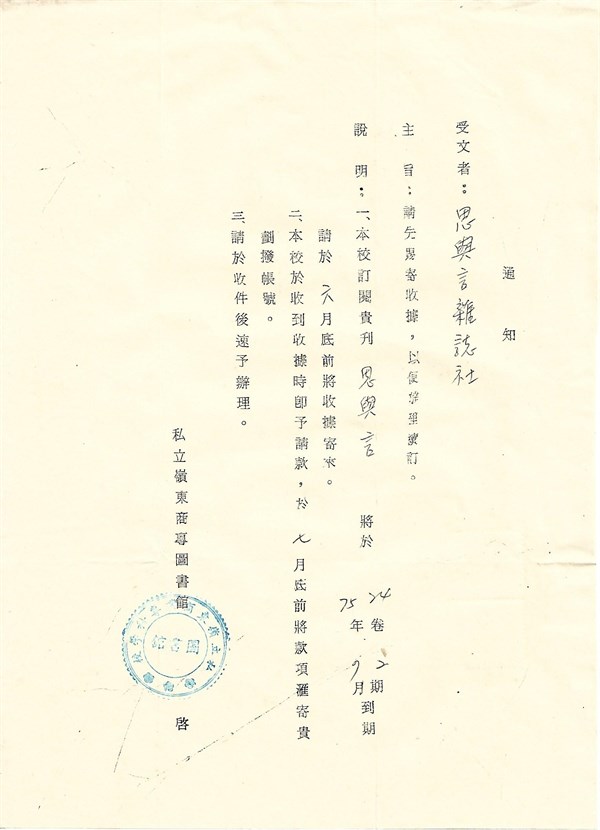 通知
受文者：思與言雜誌社
主旨：請先惠寄收據，以便辦理續訂。
說明：一、本校訂閱貴刊 思與言 將於 24卷2期 75年7月到期
請於六月底前將收據寄來。
二、本校於收到收據時即予請款，於七月底前將款項滙寄貴
劃撥帳號。
三、請於收件後速予辦理。
私立嶺東商專圖書館 啓
圖書館